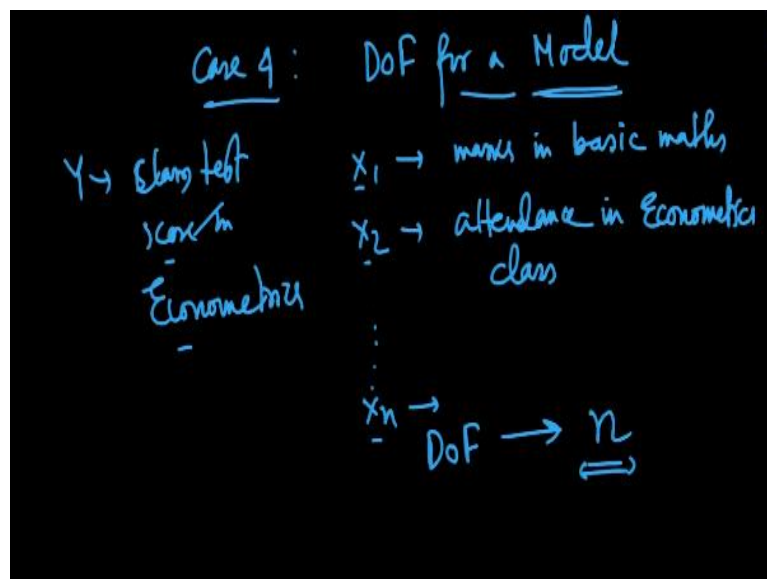 Case 4 : DoF for a Model
Y → class test
score in
Econometrics
X1 → marks in basic maths
X2 → attendance in Econometrics
class
Xn →
DoF → n